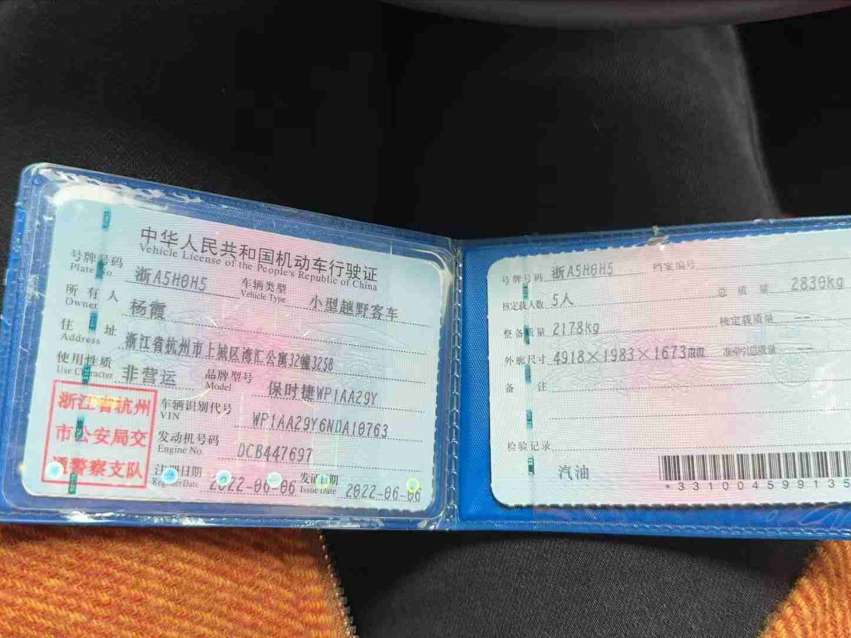 中华人民共和国机动车行驶证
Vehicle License of the People's Republic of China
号牌号码 浙A5H0H5 车辆类型 小型越野客车
Plate No. Vehicle Type
所有人 杨霞
Owner
住址 浙江省杭州市上城区湾汇公寓32幢3258
Address
使用性质 非营运 品牌型号 保时捷WP1AA29Y
Use Character Model
浙江省杭州
市公安局交
通警察支队
车辆识别代号 WP1AA29Y6NDA10763
VIN
发动机号码 DCB447697
Engine No.
注册日期 2022-06-06 发证日期 2022-06-06
Register Date Issue Date
号牌号码 浙A5H0H5 档案编号
核定载人数 5人 总质量 2830kg
整备质量 2178kg 核定载质量 --
外廓尺寸 4918×1983×1673mm 准牵引总质量 --
备注
检验记录
汽油
*331004599135